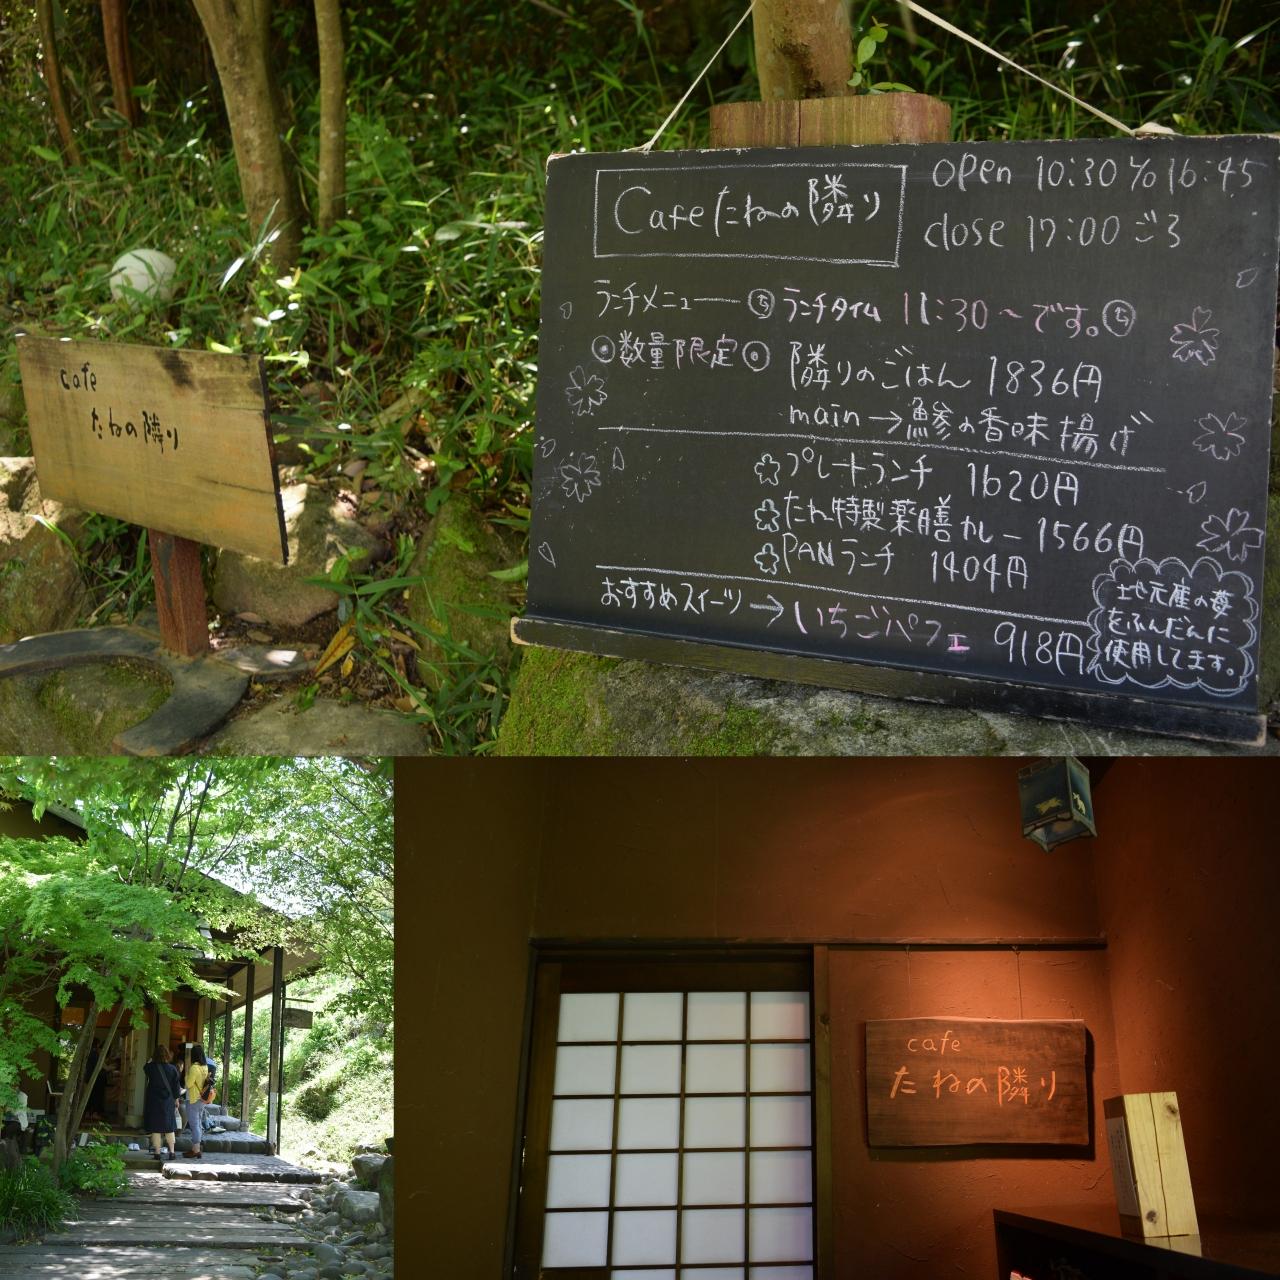 cafe
たねの隣り
Cafe たねの隣り
open 10:30 % 16:45
close 17:00 ごろ
ランチメニュー ランチタイム 11:30〜です。
数量限定 隣りのごはん 1836円
main→鯵の香味揚げ
プレートランチ 1620円
たね特製薬膳カレー 1566円
PANランチ 1404円
おすすめスイーツ→いちごパフェ 918円
地元産の苺
をふんだんに
使用してます。
cafe
たねの隣り